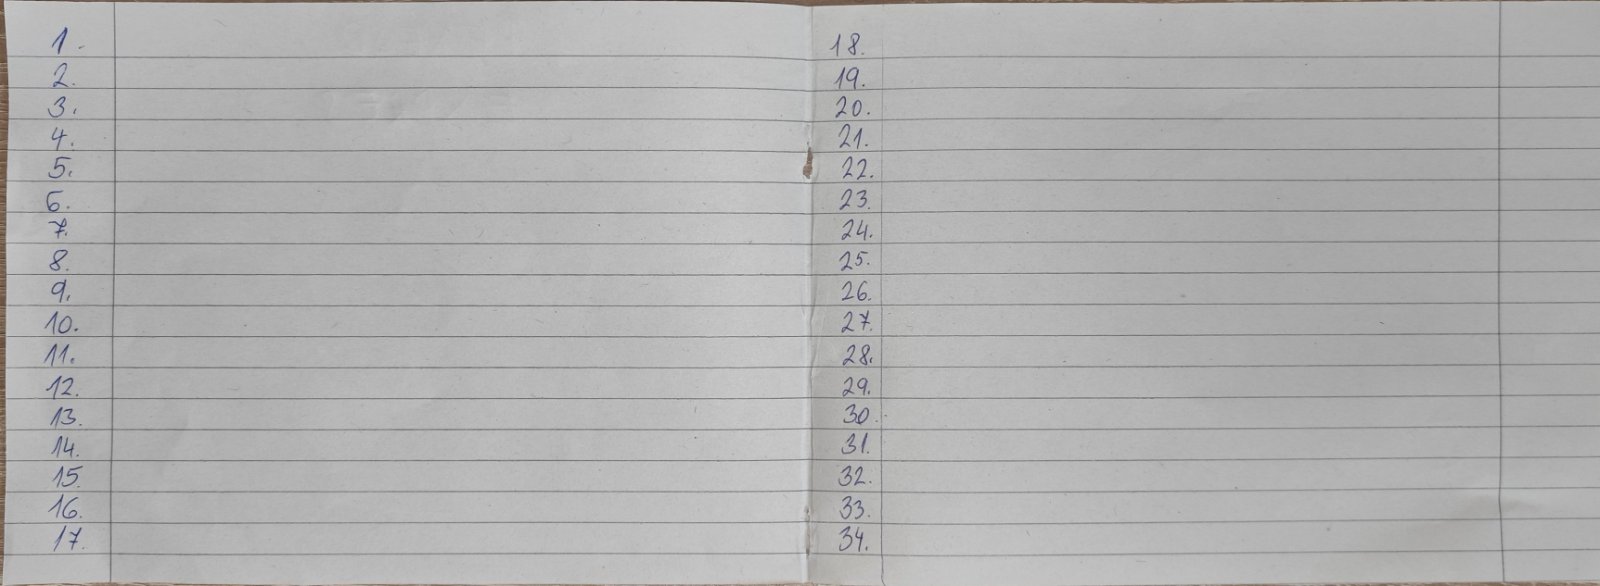 1.
2.
3.
4.
5.
6.
7.
8.
9.
10.
11.
12.
13.
14.
15.
16.
17.
18.
19.
20.
21.
22.
23.
24.
25.
26.
27.
28.
29.
30.
31.
32.
33.
34.